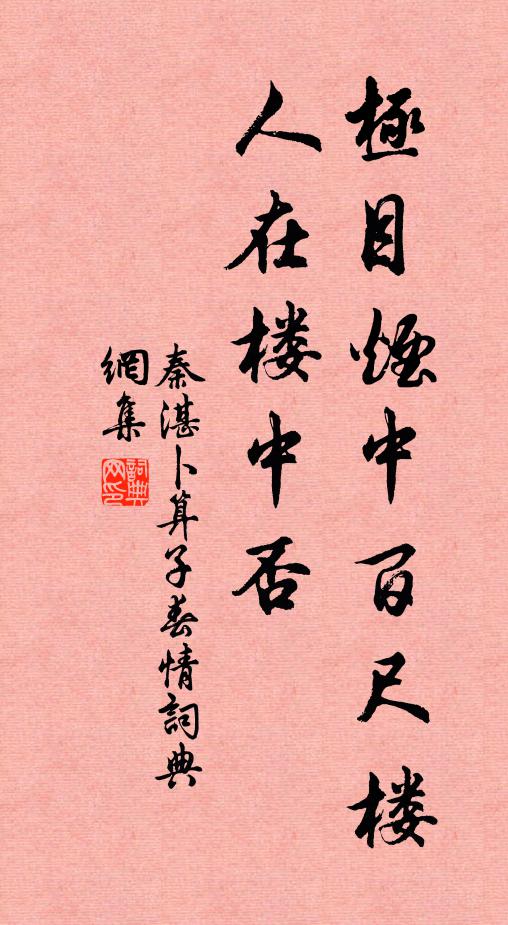 極目煙中百尺楼
人在楼中否
秦湛卜算子春情詞典
網集
詞典
网印